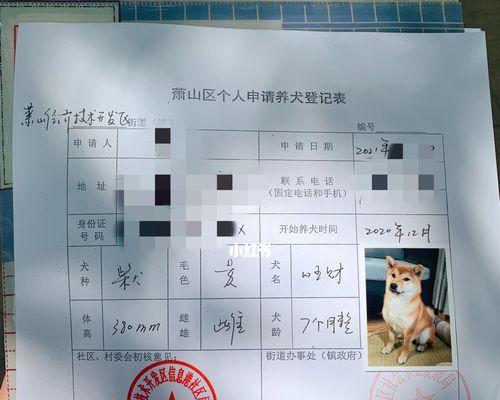 萧山区个人申请养犬登记表
萧山经济技术开发区街道(镇) 编号
申请人 申请日期 2021年
地址 联系电话
(固定电话和手机)
身份证
号码 X 开始养犬时间 2020年12月
小红书
犬种 柴犬 毛色 黄 犬名 旺财
体高 380mm 雌雄 雌 犬龄 7个月整
社区、村委会初核意见: 街道办事处(镇政府)
技术开发区信息港社区居